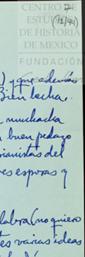 CENTRO DE
ESTUDIOS
DE HISTORIA
DE MEXICO
FUNDACIÓN
), que además
Bien hecha.
muchacha
buen pedazo
del
es esposas y
labra (no quiero
tes varias ideas